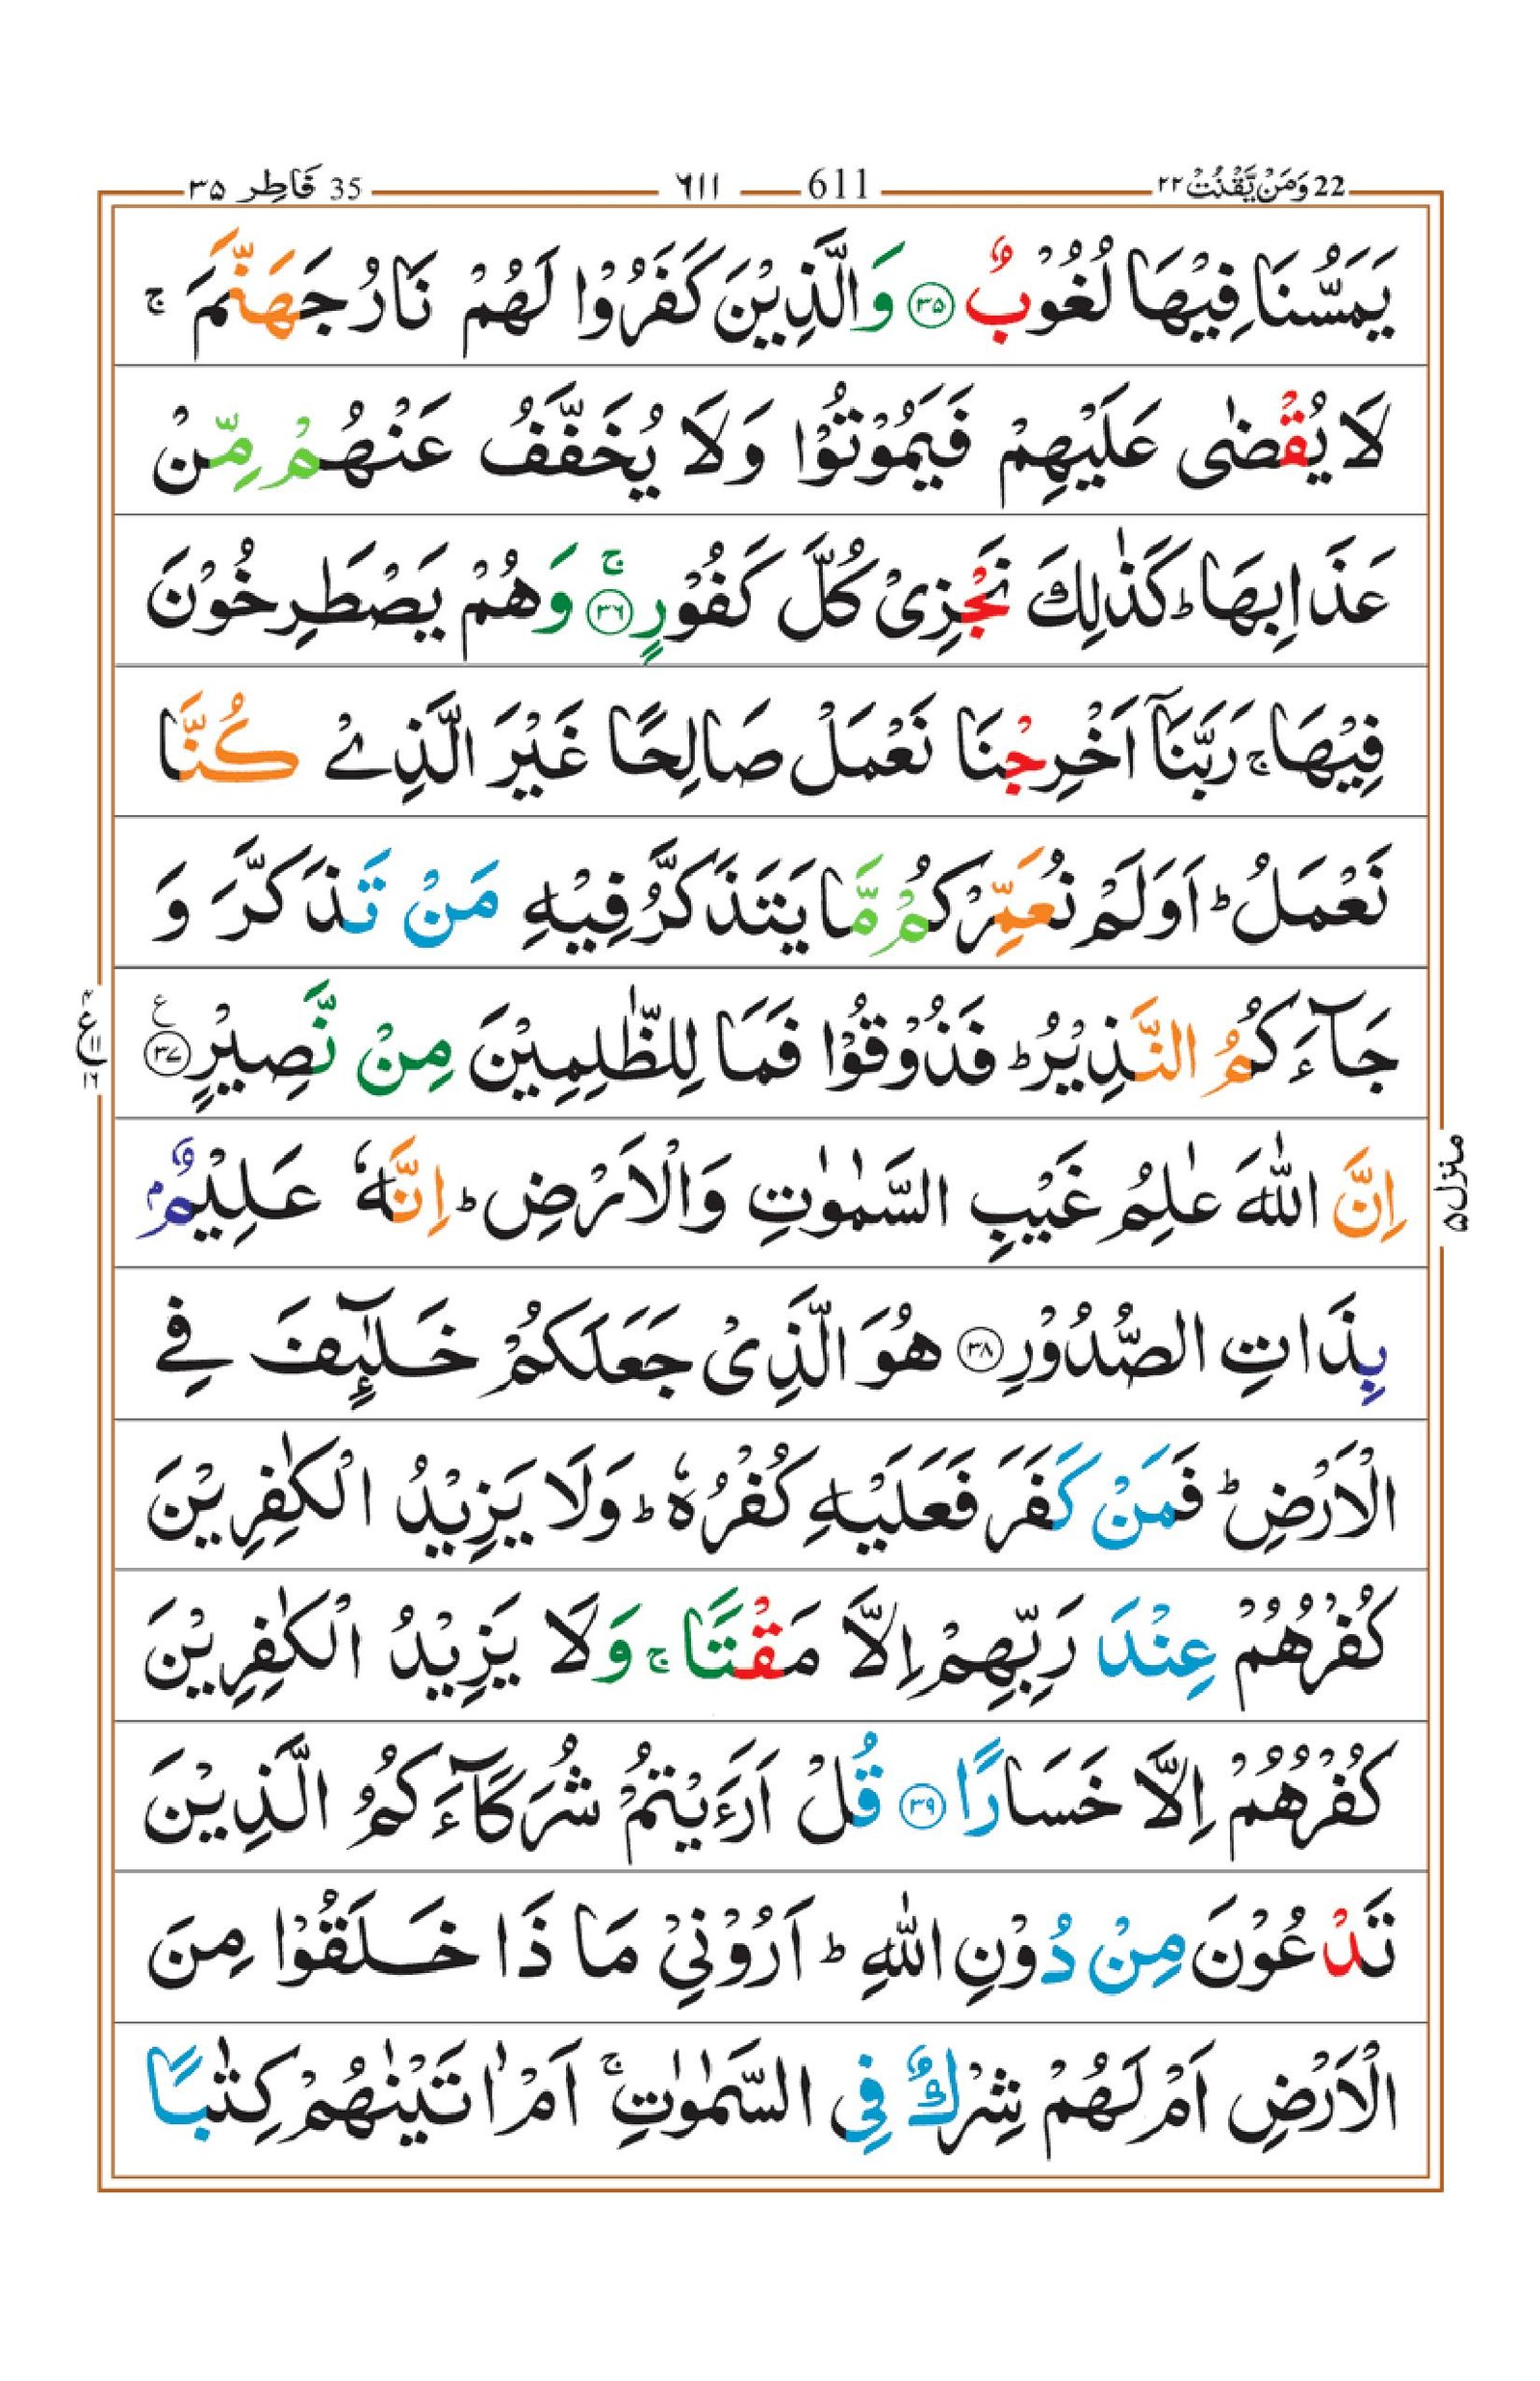 22 وَمَنْ يَّقْنُتْ ۲۲ 611 ٦١١ 35 فَاطِر ۳۵
يَمَسُّنَا فِيْهَا لُغُوْبٌ ﴿۳۵﴾ وَالَّذِيْنَ كَفَرُوْا لَهُمْ نَارُ جَهَنَّمَ ۚ
لَا يُقْضٰى عَلَيْهِمْ فَيَمُوْتُوْا وَلَا يُخَفَّفُ عَنْهُمْ مِّنْ
عَذَابِهَا ؕ كَذٰلِكَ نَجْزِىْ كُلَّ كَفُوْرٍ ۚ﴿۳۶﴾ وَهُمْ يَصْطَرِخُوْنَ
فِيْهَا ۚ رَبَّنَاۤ اَخْرِجْنَا نَعْمَلْ صَالِحًا غَيْرَ الَّذِىْ كُنَّا
نَعْمَلُ ؕ اَوَلَمْ نُعَمِّرْكُمْ مَّا يَتَذَكَّرُ فِيْهِ مَنْ تَذَكَّرَ وَ
جَآءَكُمُ النَّذِيْرُ ؕ فَذُوْقُوْا فَمَا لِلظّٰلِمِيْنَ مِنْ نَّصِيْرٍ ﴿۳۷﴾ ع
ع ۴ ۱۱ ۱۶
اِنَّ اللّٰهَ عٰلِمُ غَيْبِ السَّمٰوٰتِ وَالْاَرْضِ ؕ اِنَّهٗ عَلِيْمٌۢ
منزل ۵
بِذَاتِ الصُّدُوْرِ ﴿۳۸﴾ هُوَ الَّذِىْ جَعَلَكُمْ خَلٰٓئِفَ فِى
الْاَرْضِ ؕ فَمَنْ كَفَرَ فَعَلَيْهِ كُفْرُهٗ ؕ وَلَا يَزِيْدُ الْكٰفِرِيْنَ
كُفْرُهُمْ عِنْدَ رَبِّهِمْ اِلَّا مَقْتًا ۚ وَلَا يَزِيْدُ الْكٰفِرِيْنَ
كُفْرُهُمْ اِلَّا خَسَارًا ﴿۳۹﴾ قُلْ اَرَءَيْتُمْ شُرَكَآءَكُمُ الَّذِيْنَ
تَدْعُوْنَ مِنْ دُوْنِ اللّٰهِ ؕ اَرُوْنِىْ مَا ذَا خَلَقُوْا مِنَ
الْاَرْضِ اَمْ لَهُمْ شِرْكٌ فِى السَّمٰوٰتِ ۚ اَمْ اٰتَيْنٰهُمْ كِتٰبًا